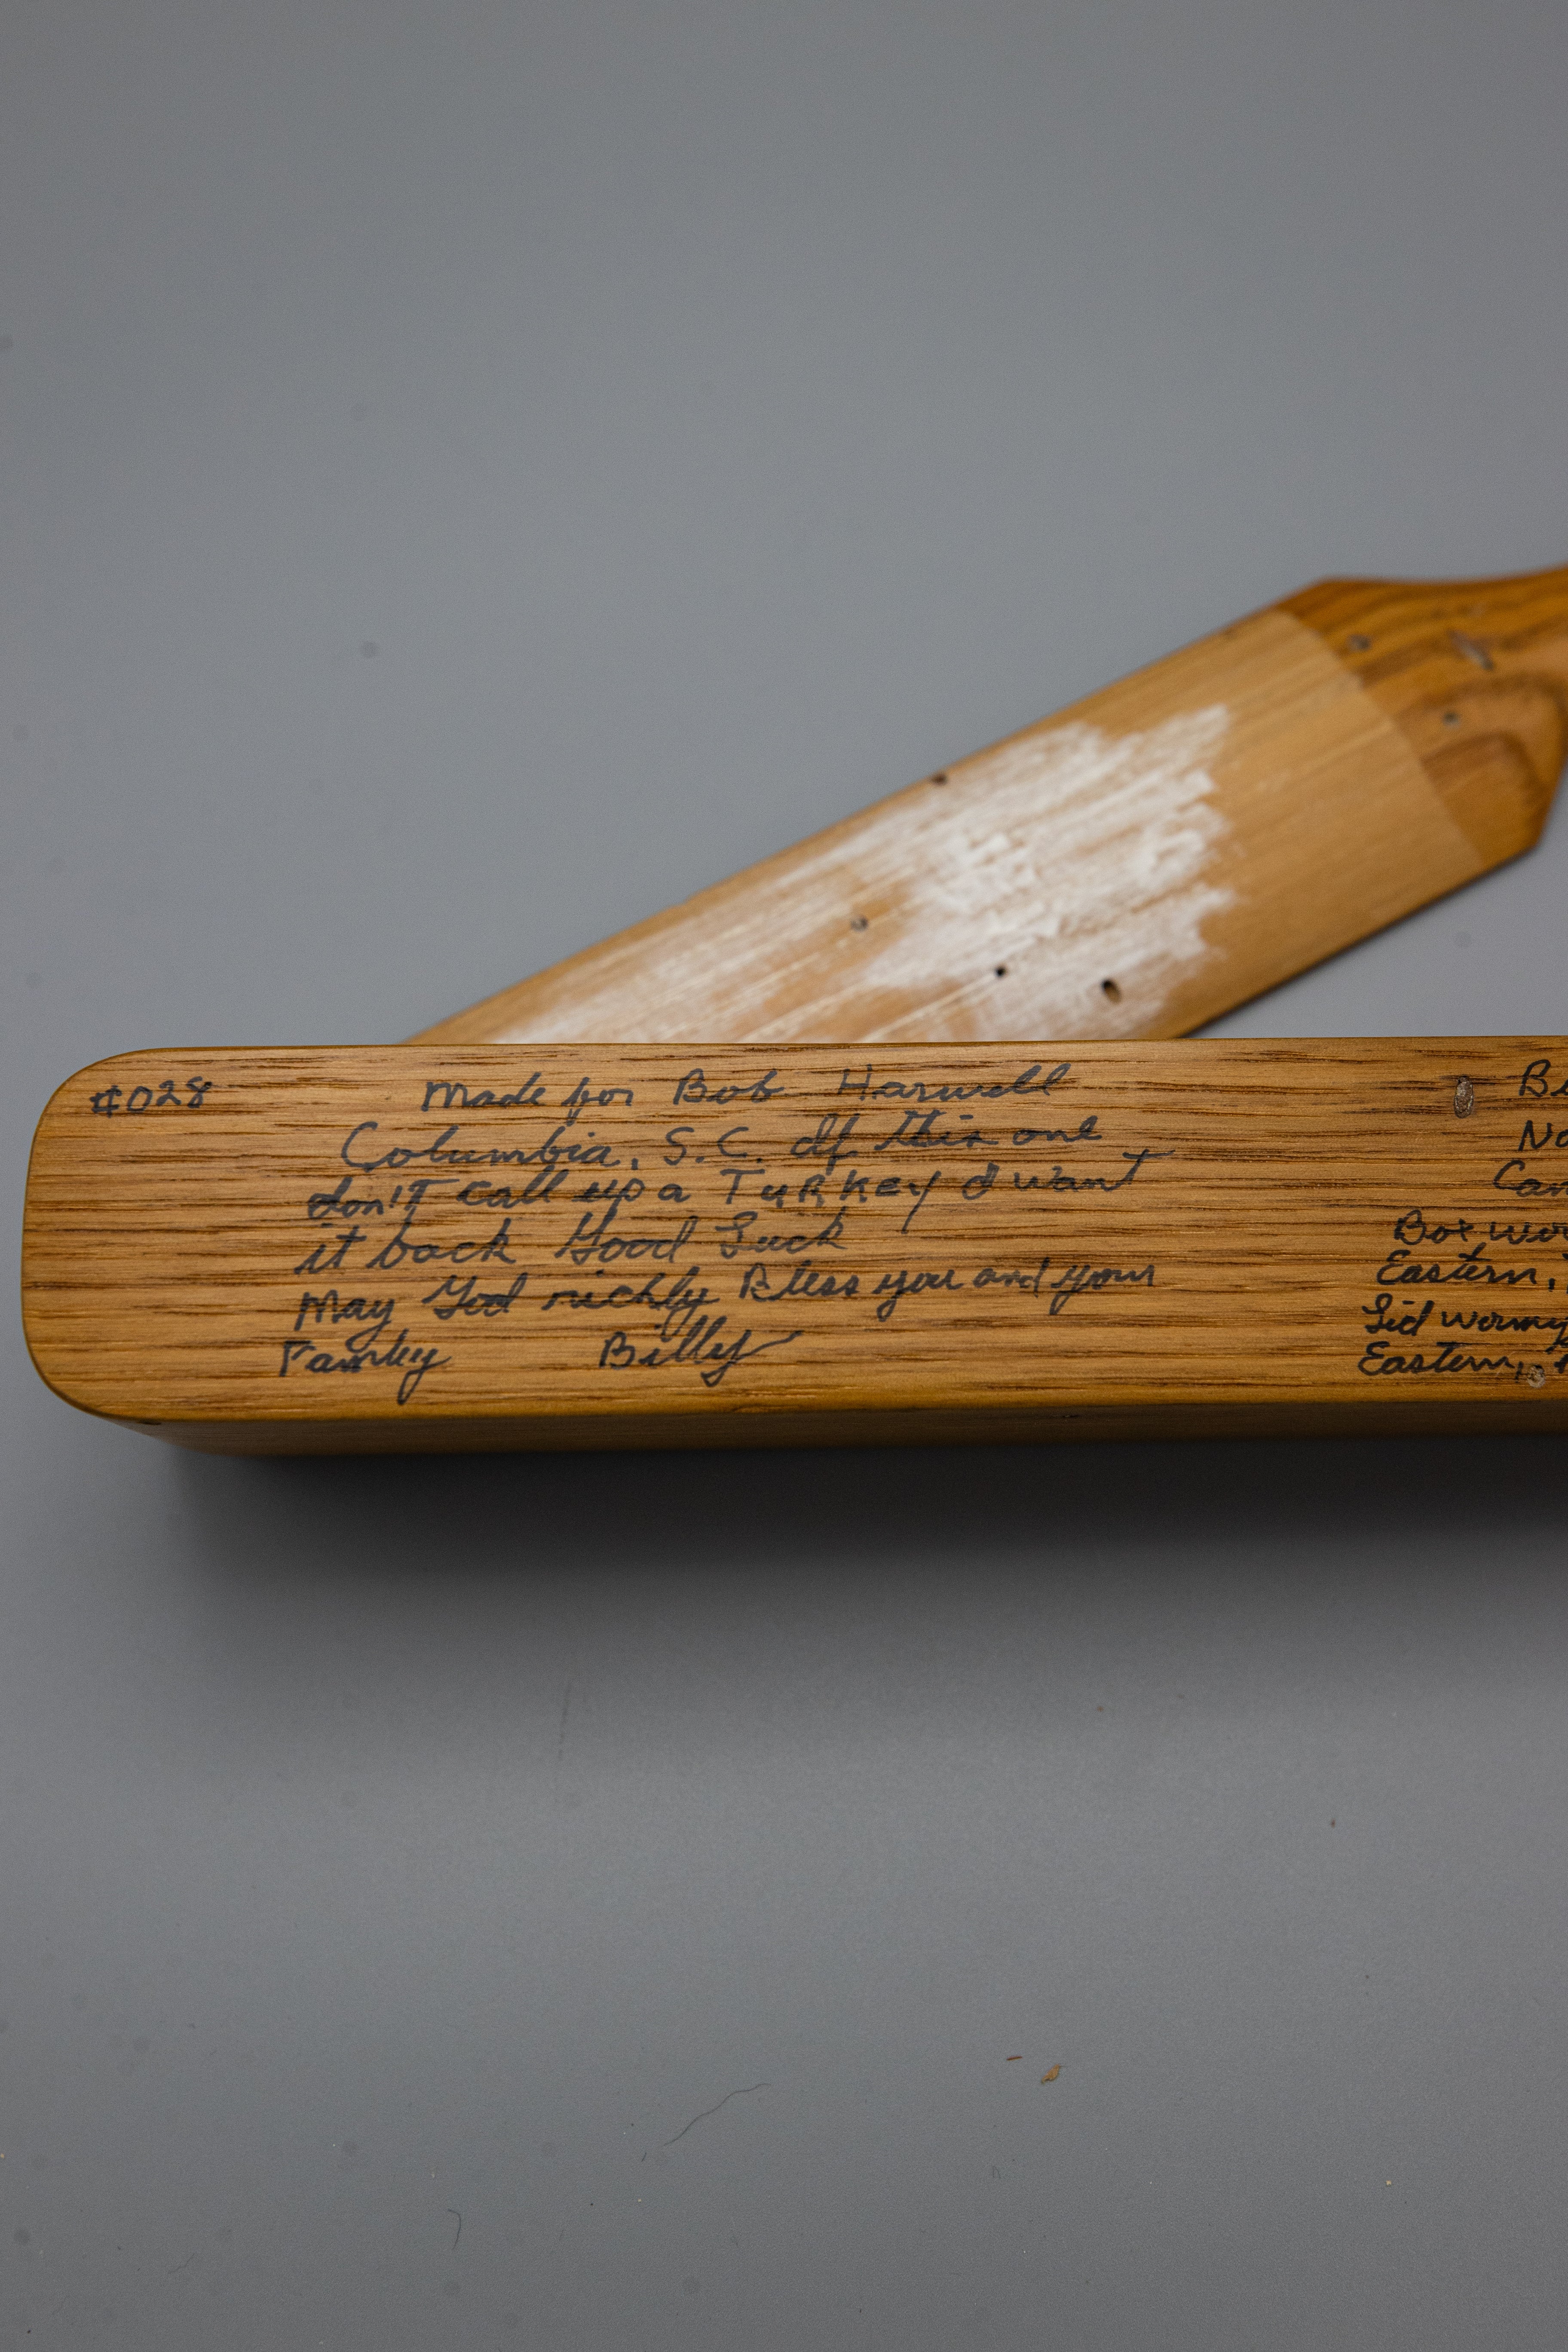 ¢028
Made for Bob Harwell
Columbia, S.C. If this one
don't call up a TURKEY I want
it back Good Luck
May God richly Bless you and your
Family Billy
Box
Eastern,
Lid wormy
Eastern,